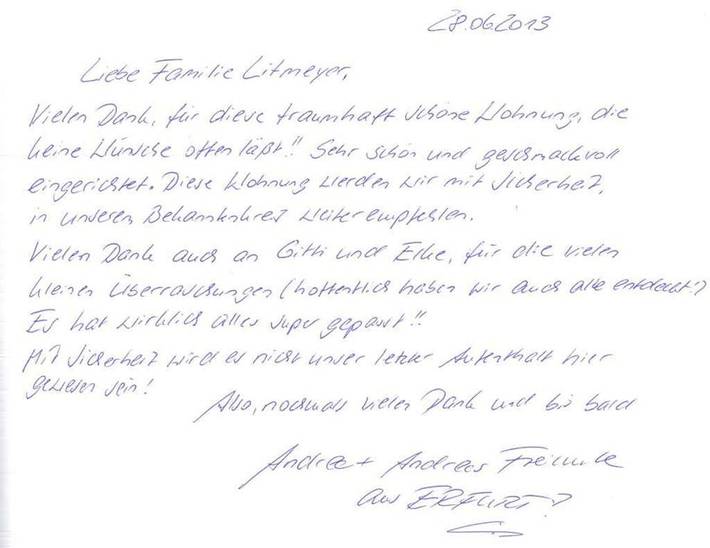 28.06.2013
Liebe Familie Litmeyer,
Vielen Dank, für diese traumhaft schöne Wohnung, die
keine Wünsche offen läßt!! Sehr schön und geschmackvoll
eingerichtet. Diese Wohnung werden wir mit Sicherheit,
in unseren Bekanntenkreis weiterempfehlen.
Vielen Dank auch an Gitti und Eike, für die vielen
kleinen Überraschungen (hoffentlich haben wir auch alle entdeckt?)
Es hat wirklich alles super gepasst!!
Mit Sicherheit wird es nicht unser letzter Aufenthalt hier
gewesen sein!
Also, nochmals vielen Dank und bis bald
Andrea + Andreas
aus ERFURT